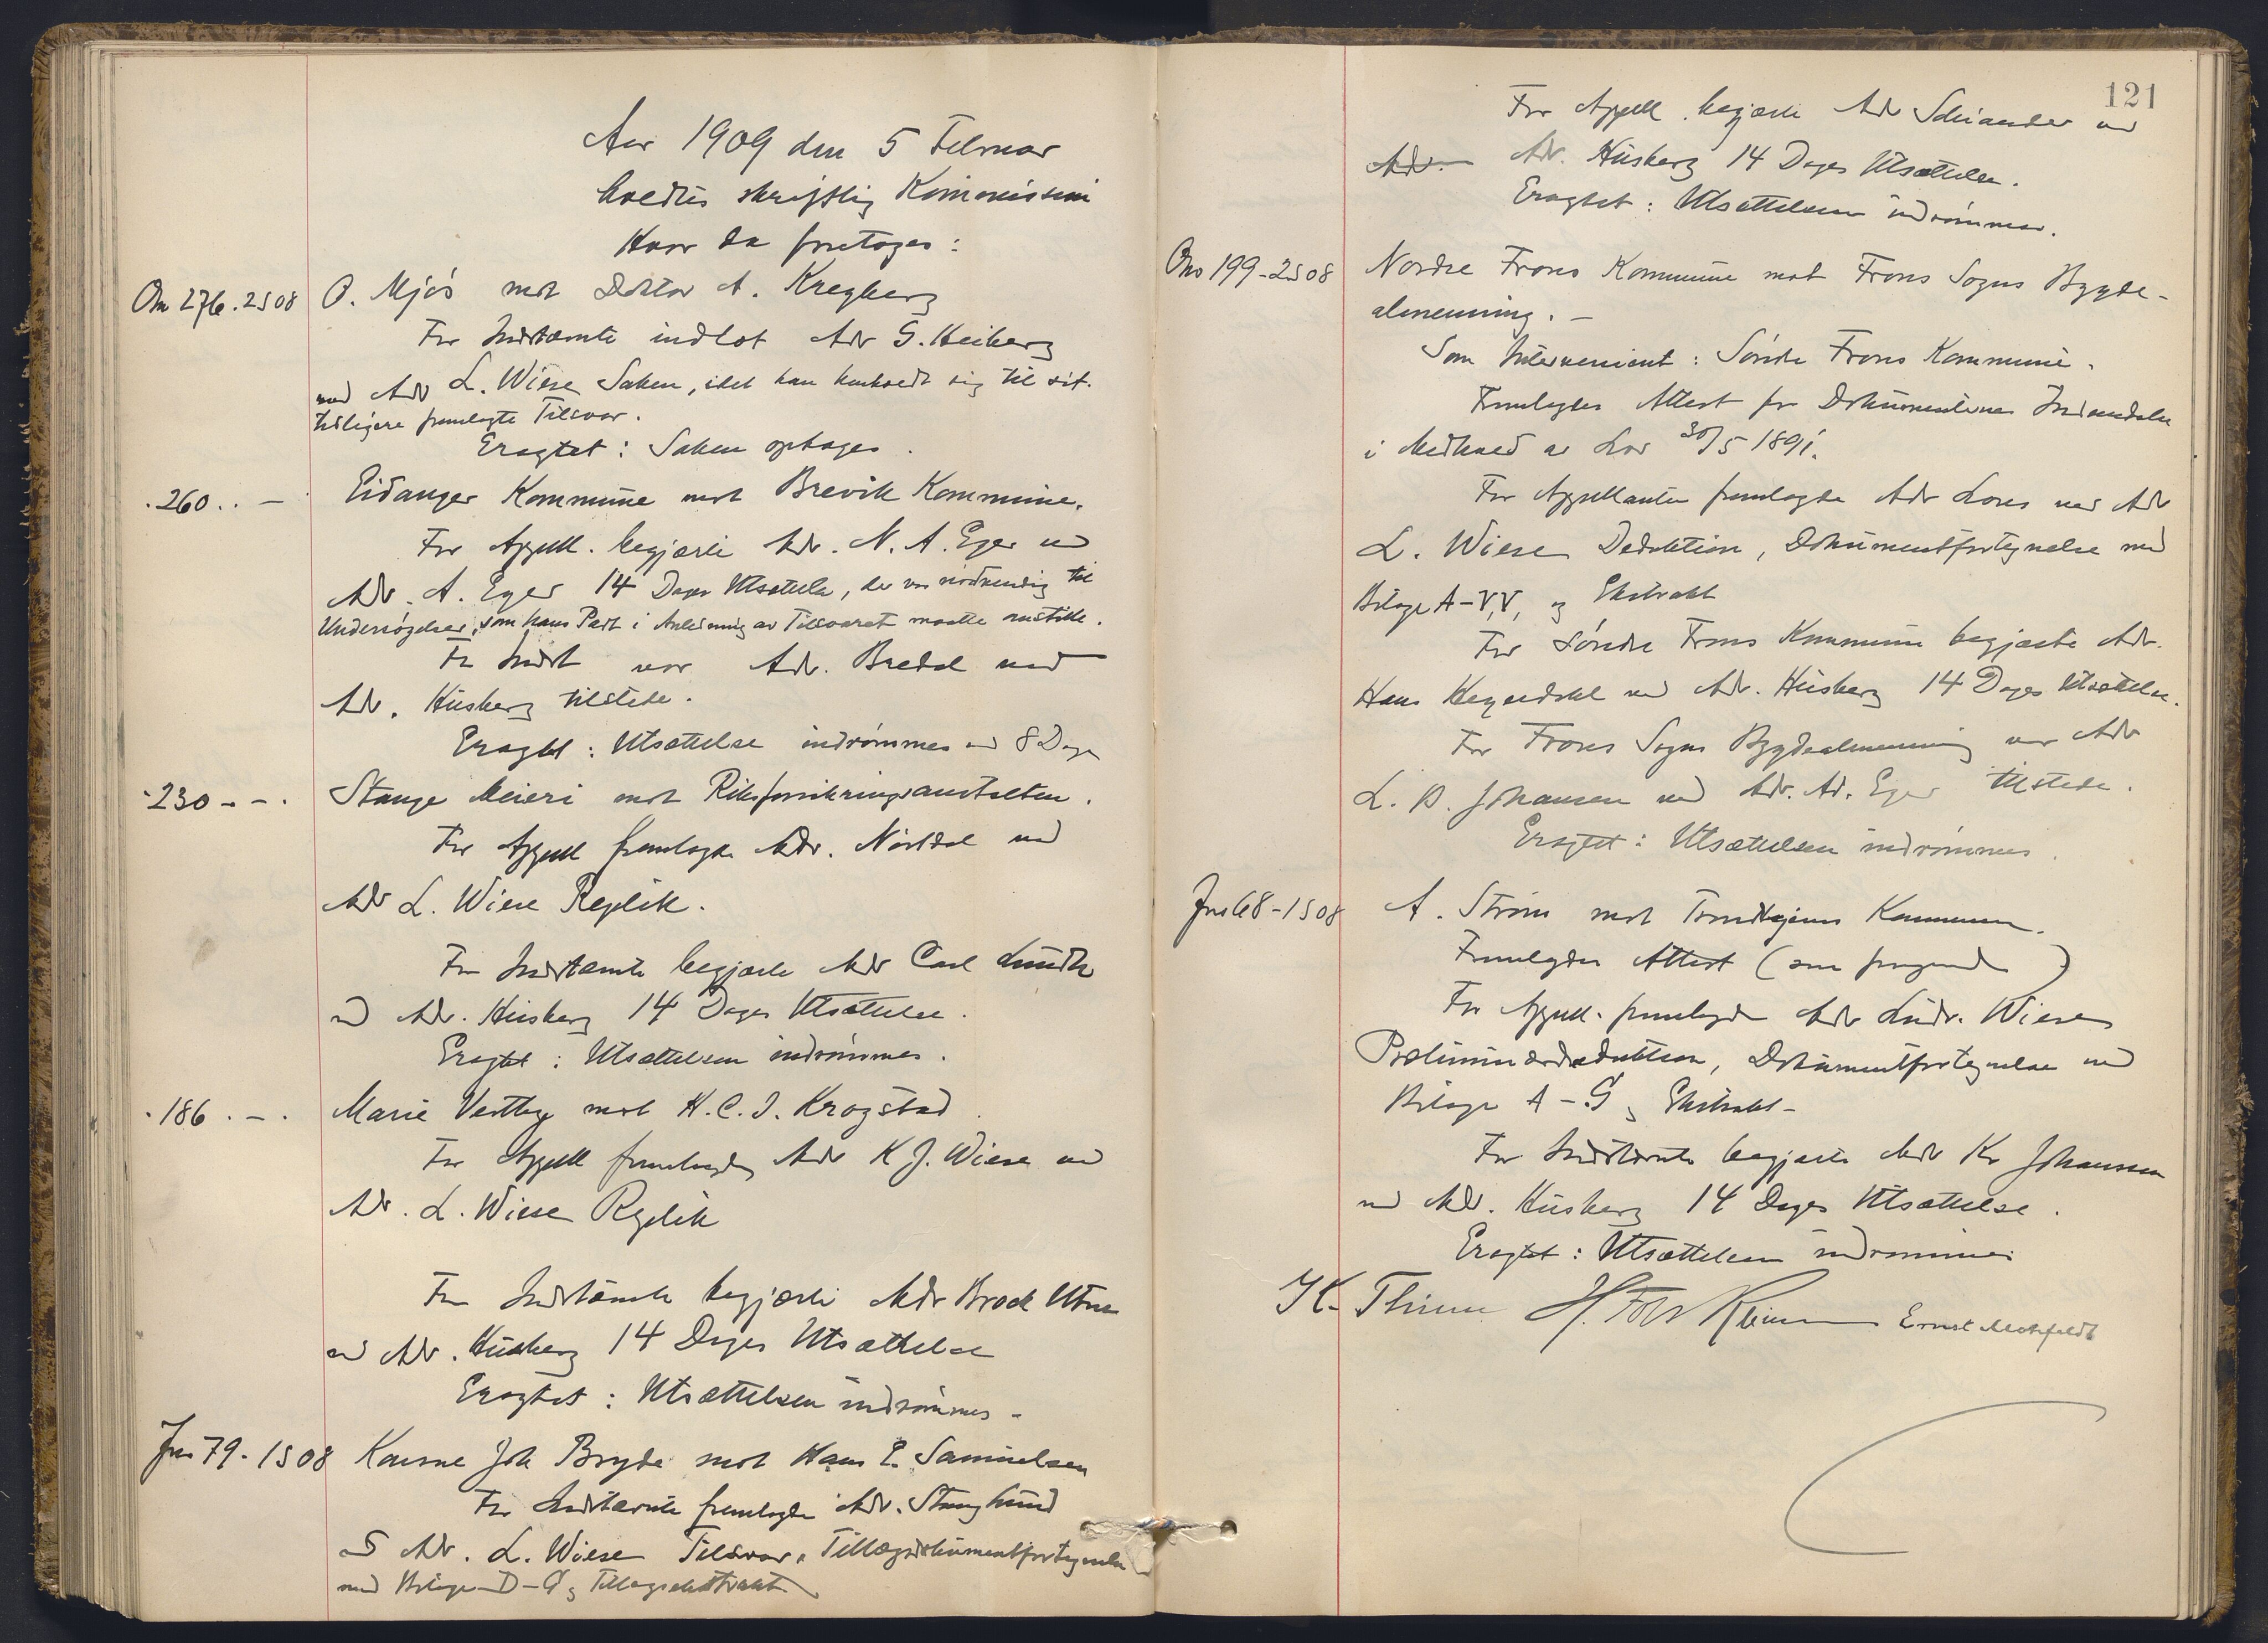 Aar 1909 den 5 Februar
holdtes skriftlig Kommission
Hvor da foretoges:
Ons 276. 2S 08 O. Mjös mot Doktor A. Kregberg
For Indstævnte indlot Adv G. Heiberg
ved Adv L. Wiese Saken, idet han henholdt sig til sit
tidligere fremlagte Tilsvar.
Eragtet: Saken optages.
. 260 . . — Eidanger Kommune mot Brevik Kommune.
For Appell. begjærte Adv. N. A. Eger ved
Adv. A. Eger 14 Dages Utsættelse, der var nödvendig til
Undersögelser, som hans Part i Anledning av Tilsvaret maatte anstille.
For Indst var Adv. Bredal ved
Adv. Husberg tilstede.
Eragtet: Utsættelse indrömmes ved 8 Dage
. 230 - - . Stange Meieri mot Riksforsikringsanstalten.
For Appell fremlagde Adv. Nördal ved
Adv L. Wiese Replik.
For Indstævnte begjærte Adv Carl Lundh
ved Adv. Husberg 14 Dages Utsættelse.
Eragtet: Utsættelsen indrömmes.
. 186 . — . Marie Vestby mot H. C. J. Krogstad
For Appell fremlagde Adv K J. Wiese ved
Adv. L. Wiese Replik
For Indstævnte begjærte Adv Brock Utne
ved Adv. Husberg 14 Dages Utsættelse
Eragtet: Utsættelsen indrömmes -
Jns 79 - 1S 08 Konsul Joh Bryde mot Hans P. Samuelsen
For Indstævnte fremlagde Adv. Stang Lund
Adv. L. Wiese Tilsvar, Tillægsdokumentfortegnelse
med Bilage D - G, Tillægsekstrakt
121
For Appell. begjærte Adv Schiander ved
Adv. Adv. Husberg 14 Dages Utsættelse.
Eragtet: Utsættelsen indrömmes.
Ons 199 - 2S 08 Nordre Frons Kommune mot Frons Sogns Bygde-
almenning. —
Som Intervenient: Söndre Frons Kommune.
Fremlagdes Attest for Dokumenternes Indsendelse
i Medhold av Lov 30/5 1891.
For Appellanten fremlagde Adv Lous ved Adv
L. Wiese Deduktion, Dokumentfortegnelse med
Bilage A - VV, og Ekstrakt
For Söndre Frons Kommune begjærte Adv.
Hans Heyerdahl ved Adv. Husberg 14 Dages Utsættelse.
For Frons Sogns Bygdealmenning var Adv
L. B. Johansen ved Adv. Ad. Eger tilstede.
Eragtet: Utsættelsen indrömmes.
Jns 68 - 1S 08 A. Ström mot Trondhjems Kommune.
Fremlagdes Attest (som foregaaende)
For Appell. fremlagde Adv Ludv. Wiese
Præliminærdeduktion, Dokumentfortegnelse med
Bilage A - G, Ekstrakt -
For Indstævnte begjærte Adv Kr Johanssen
ved Adv. Husberg 14 Dages Utsættelse.
Eragtet: Utsættelsen indrömmes
K. Thinn Ernst Motzfeldt